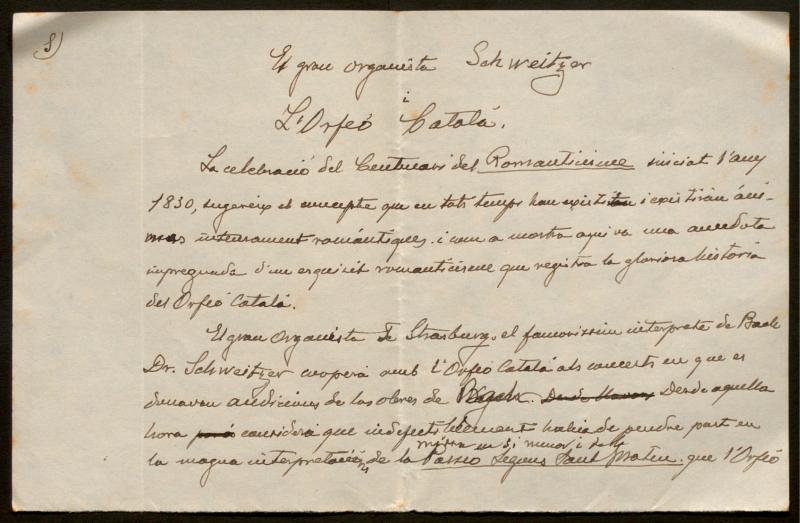 8)
El gran organista Schweitzer
i
L'Orfeó Catalá.
La celebració del Centenari del Romanticisme iniciat l'any
1830, sugereix el concepte que en tots temps han existit i existirán áni-
mas intensament romántiques. i com a mostra aquí va una anecdota
impregnada d'un exquisit romanticisme que registra la gloriosa historia
del Orfeó Catalá.
El gran organista de Strasburg, el famosissim interprete de Bach
Dr. Schweitzer cooperá amb l'Orfeó Catalá als concerts en que es
donavan audicions de las obres de Bach. Desde llavors Desde aquella
hora considerá que indefectiblement havia de pendre part en
missa en si menor i de la
la magna interpretació de la Passió segons Sant Mateu. que l'Orfeó